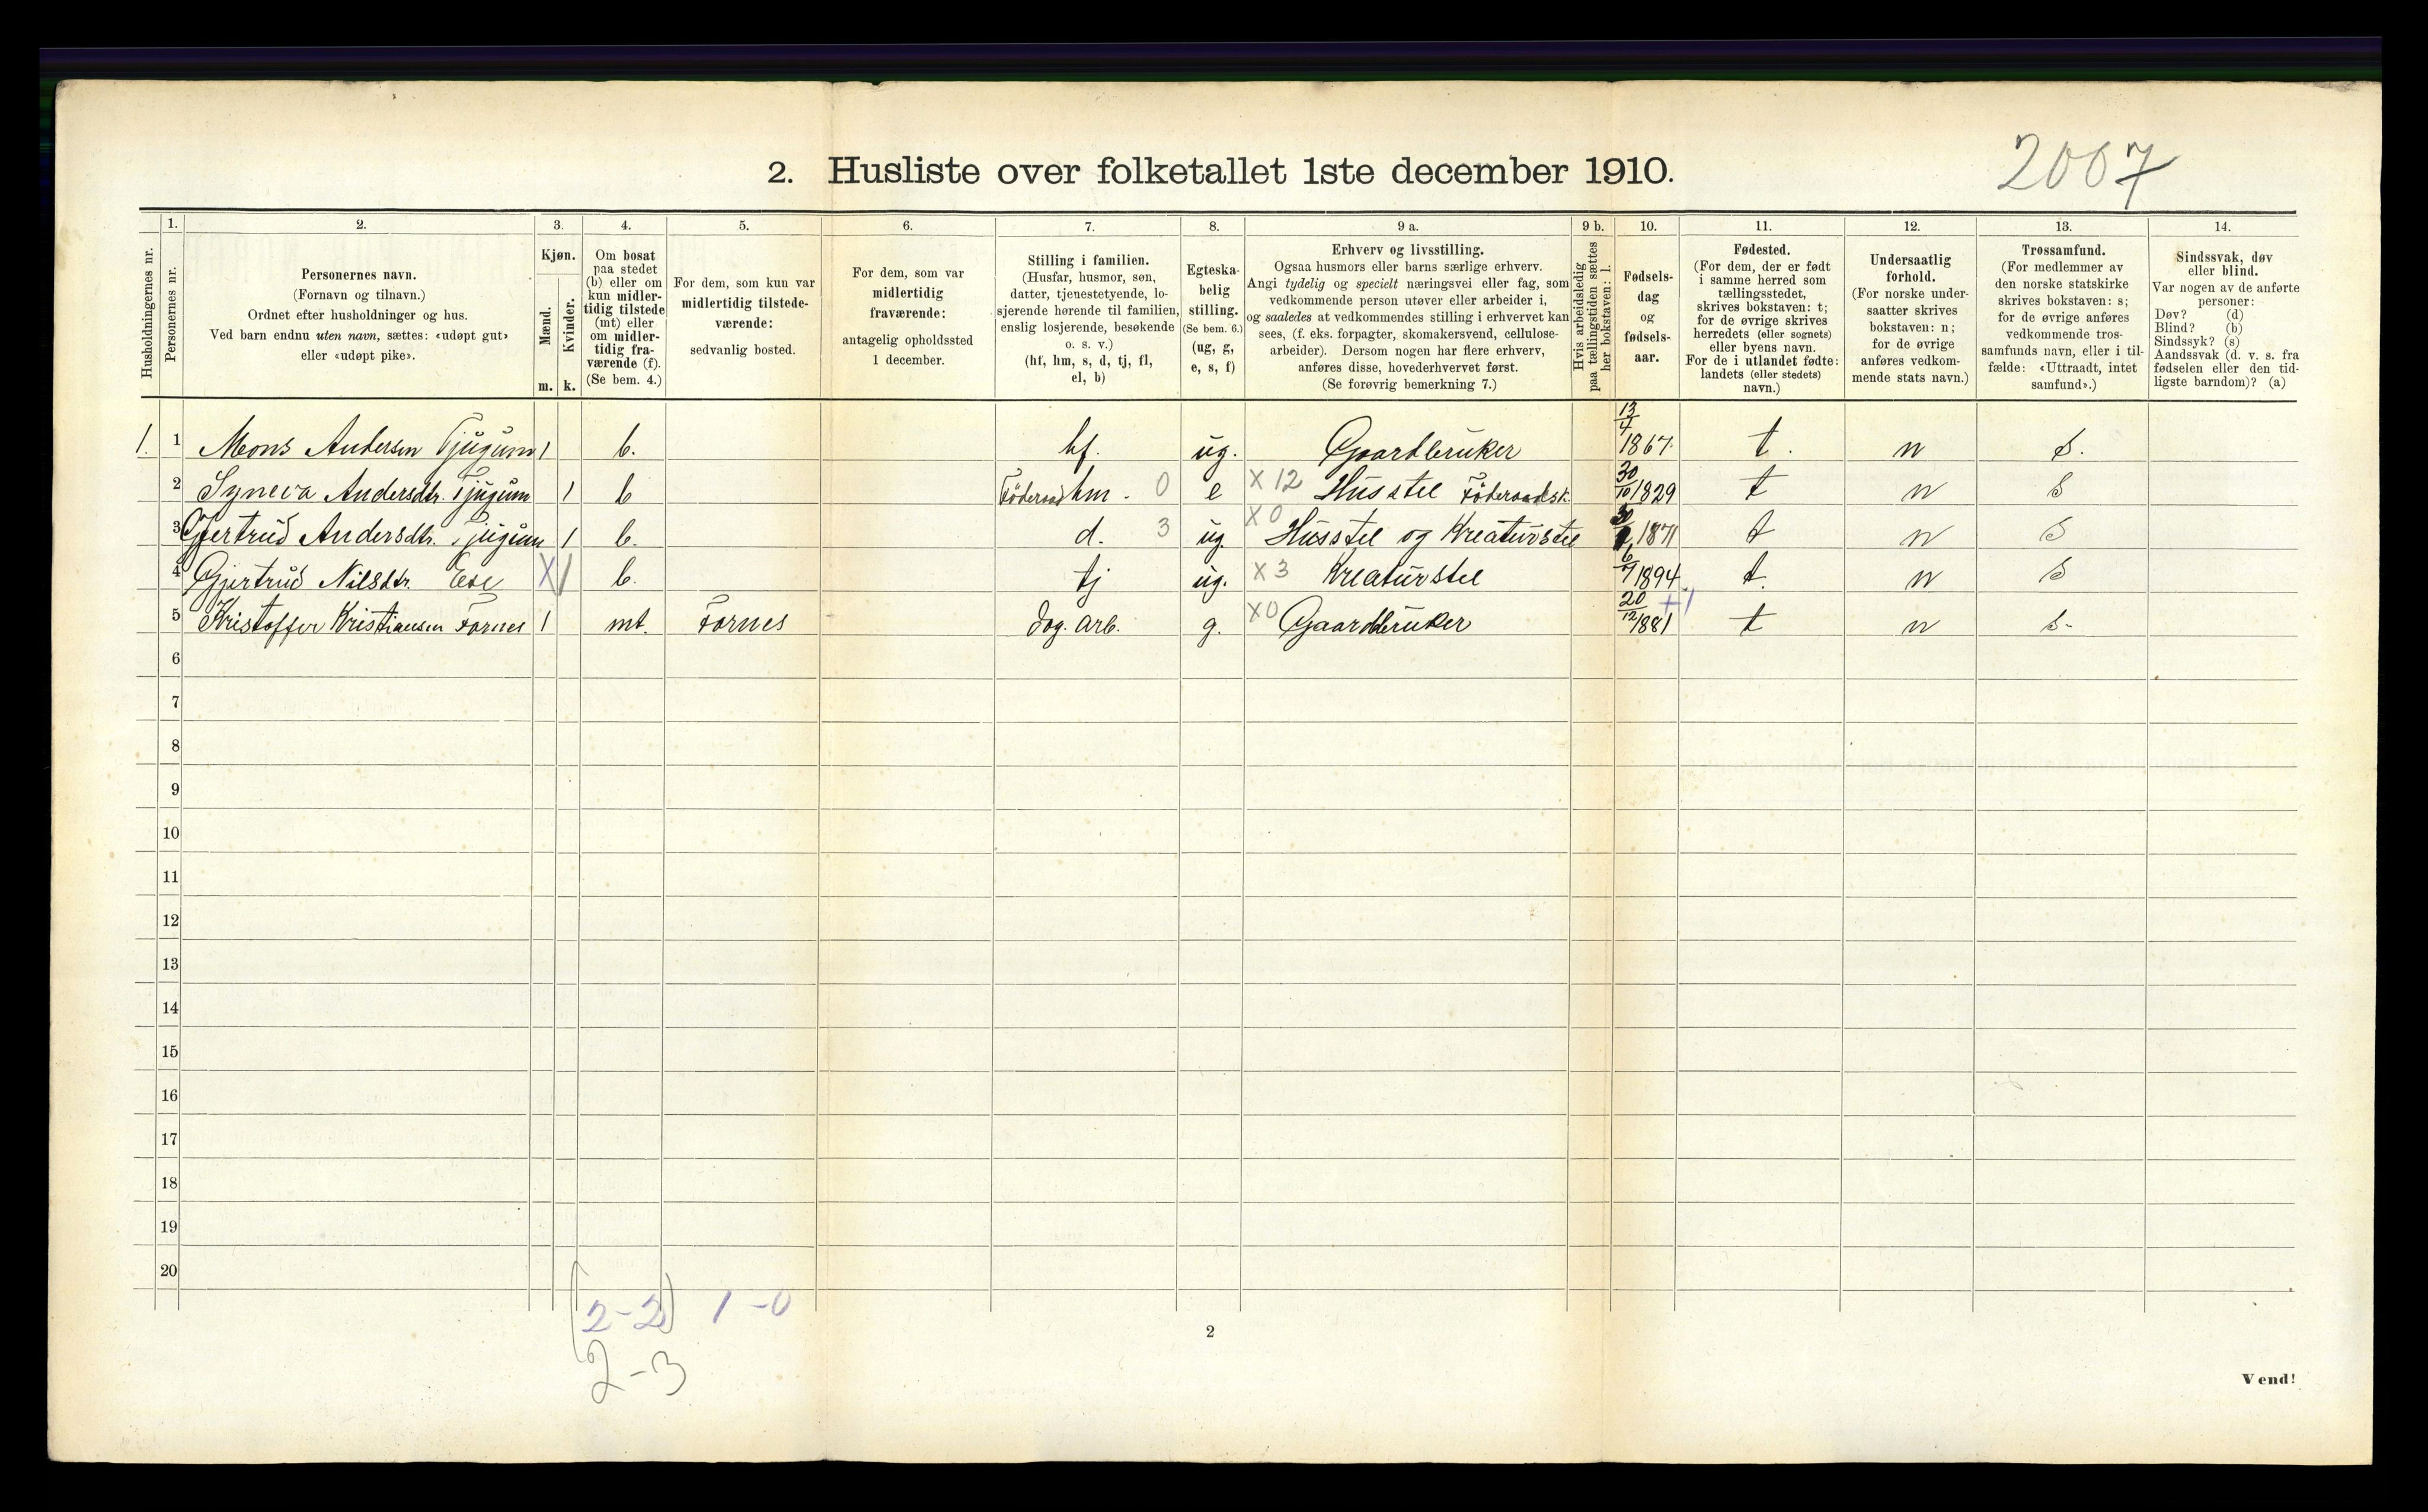 2. Husliste over folketallet 1ste december 1910.
2007
Husholdningernes nr.
1.
Personernes nr.
2.
Personernes navn.
(Fornavn og tilnavn.)
Ordnet efter husholdninger og hus.
Ved barn endnu uten navn, sættes: «udøpt gut»
eller «udøpt pike».
3.
Kjøn.
Mænd.
Kvinder.
m. k.
4.
Om bosat
paa stedet
(b) eller om
kun midler-
tidig tilstede
(mt) eller
om midler-
tidig fra-
værende (f).
(Se bem. 4.)
5.
For dem, som kun var
midlertidig tilstede-
værende:
sedvanlig bosted.
6.
For dem, som var
midlertidig
fraværende:
antagelig opholdssted
1 december.
7.
Stilling i familien.
(Husfar, husmor, søn,
datter, tjenestetyende, lo-
sjerende hørende til familien,
enslig losjerende, besøkende
o. s. v.)
(hf, hm, s, d, tj, fl,
el, b)
8.
Egteska-
belig
stilling.
(Se bem. 6.)
(ug, g,
e, s, f)
9 a.
Erhverv og livsstilling.
Ogsaa husmors eller barns særlige erhverv.
Angi tydelig og specielt næringsvei eller fag, som
vedkommende person utøver eller arbeider i,
og saaledes at vedkommendes stilling i erhvervet kan
sees, (f. eks. forpagter, skomakersvend, cellulose-
arbeider). Dersom nogen har flere erhverv,
anføres disse, hovederhvervet først.
(Se forøvrig bemerkning 7.)
9 b.
Hvis arbeidsledig
paa tællingstiden sættes
her bokstaven: l.
10.
Fødsels-
dag
og
fødsels-
aar.
11.
Fødested.
(For dem, der er født
i samme herred som
tællingsstedet,
skrives bokstaven: t;
for de øvrige skrives
herredets (eller sognets)
eller byens navn.
For de i utlandet fødte:
landets (eller stedets)
navn.)
12.
Undersaatlig
forhold.
(For norske under-
saatter skrives
bokstaven: n;
for de øvrige
anføres vedkom-
mende stats navn.)
13.
Trossamfund.
(For medlemmer av
den norske statskirke
skrives bokstaven: s;
for de øvrige anføres
vedkommende tros-
samfunds navn, eller i til-
fælde: «Uttraadt, intet
samfund».)
14.
Sindssvak, døv
eller blind.
Var nogen av de anførte
personer:
Døv? (d)
Blind? (b)
Sindssyk? (s)
Aandssvak (d. v. s. fra
fødselen eller den tid-
ligste barndom)? (a)
1. 1 Mons Andersen Tjugum 1 b. hf. ug. Gaardbruker 13/4 1867 t. n s.
2 Syneva Andersdtr. Tjugum 1 b Föderaad hm. 0 e X 12 Husstel Föderaadsk. 30/10 1829 t n s
3 Gjertrud Andersdtr. Tjugum 1 b. d. 3 ug. X0 Husstel og Kreaturstel 1871 t n s
4 Gjertrud Nilsdtr. Ese X 1 b. tj ug. X 3 Kreaturstel 6/7 1894 t. n s
5 Kristoffer Kristiansen Fornes 1 mt. Fornes dag. arb. g. X0 Gaardbruker 20/12 1881 +1 t n s.
6
7
8
9
10
11
12
13
14
15
16
17
18
19
20
(2-2) 1-0
2-3
2
Vend!